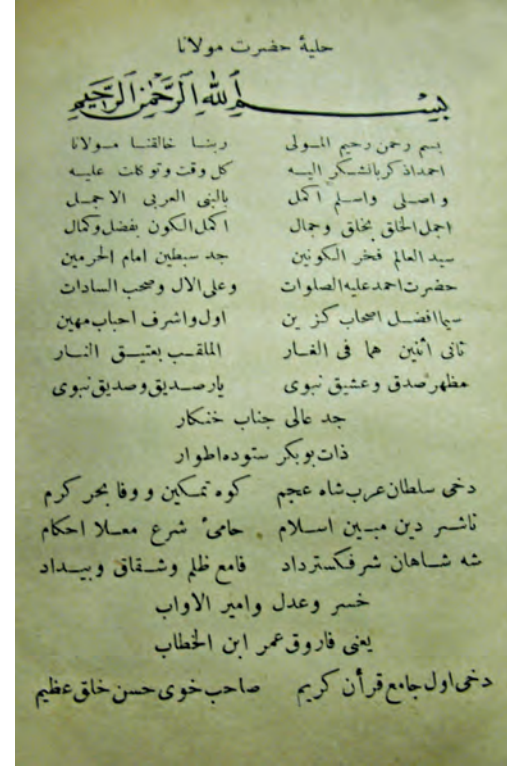 حلیهٔ حضرت مولانا
بسم الله الرحمن الرحیم
بسم رحمن رحیم المولی ربنا خالقنا مولانا
احمد اذکر بالشکر الیه کل وقت وتوکلت علیه
واصلی واسلم اکمل بالنبی العربی الاجمل
اجمل الخلق بخلق وجمال اکمل الکون بفضل وکمال
سید العالم فخر الکونین جد سبطین امام الحرمین
حضرت احمد علیه الصلوات وعلی الال وصحب السادات
سیما افضل اصحاب کزین اول واشرف احباب مهین
ثانی اثنین هما فی الغار الملقب بعتیق النار
مظهر صدق وعشیق نبوی یار صدیق وصدیق نبوی
جد عالی جناب خنکار
ذات بوبکر ستوده اطوار
دخی سلطان عرب شاه عجم کوه تمکین و وفا بحر کرم
ناشر دین مبین اسلام حامیٔ شرع معلا احکام
شه شاهان شرفکستر داد قامع ظلم وشقاق وبیداد
خسر وعدل وامیر الاواب
یعنی فاروق عمر ابن الخطاب
دخی اول جامع قرآن کریم صاحب خوی حسن خلق عظیم